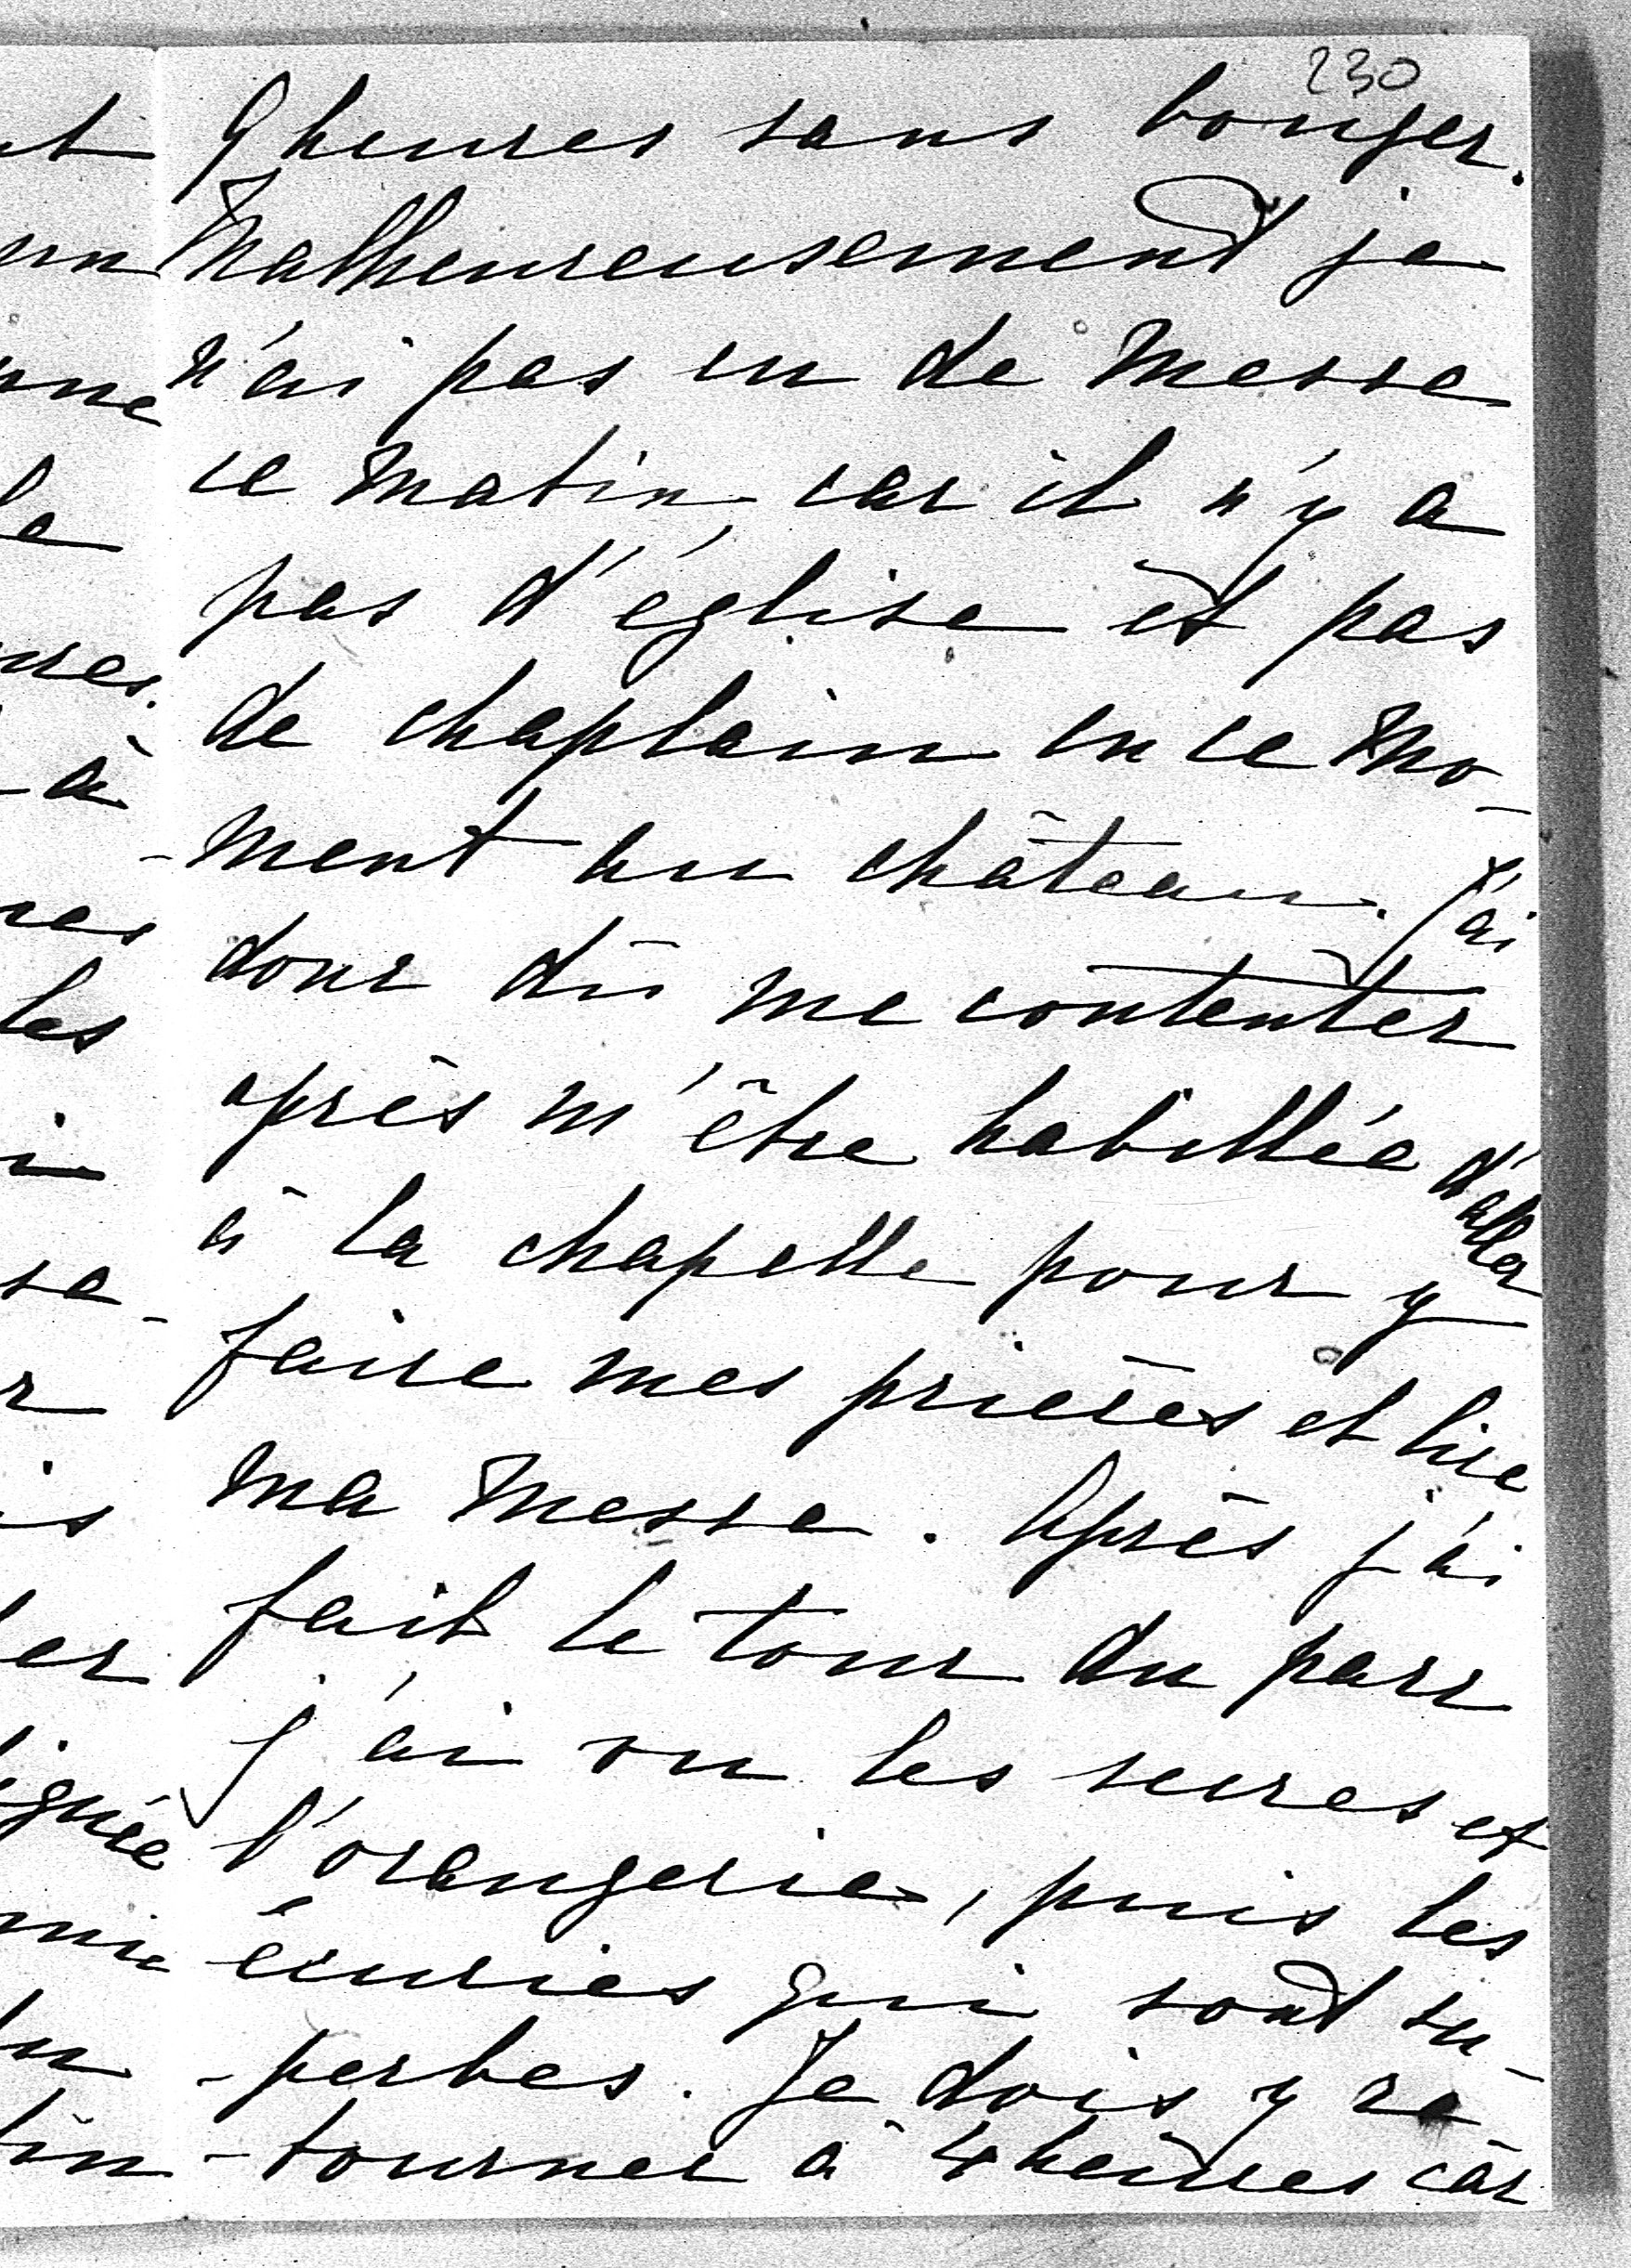 230
9 heures sans bouger.
Malheureusement je
n'ai pas eu de Messe
ce matin, car il n'y a
pas d'église et pas
de chaplain en ce mo-
-ment au château. J'ai
donc dû me contenter
après m'être habillée d'aller
à la chapelle pour y
faire mes prières et lire
ma Messe. Après j'ai
fait le tour du parc
j'ai vu les serres et
l'orangerie, puis les
écuries qui sont su-
-perbes. Je dois y re-
-tourner à 4 heures car